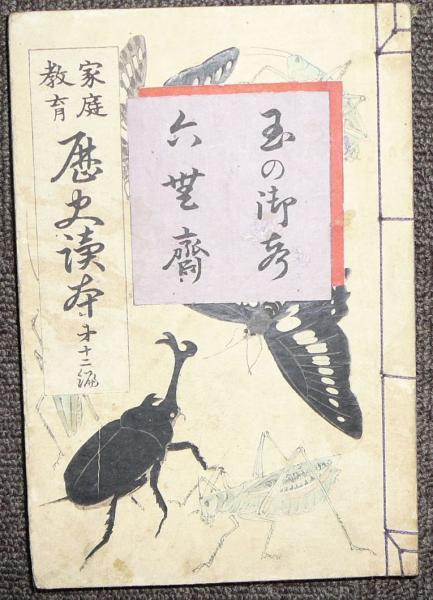 家庭
教育
歴史讀本第十二編
玉の御声
六無齋